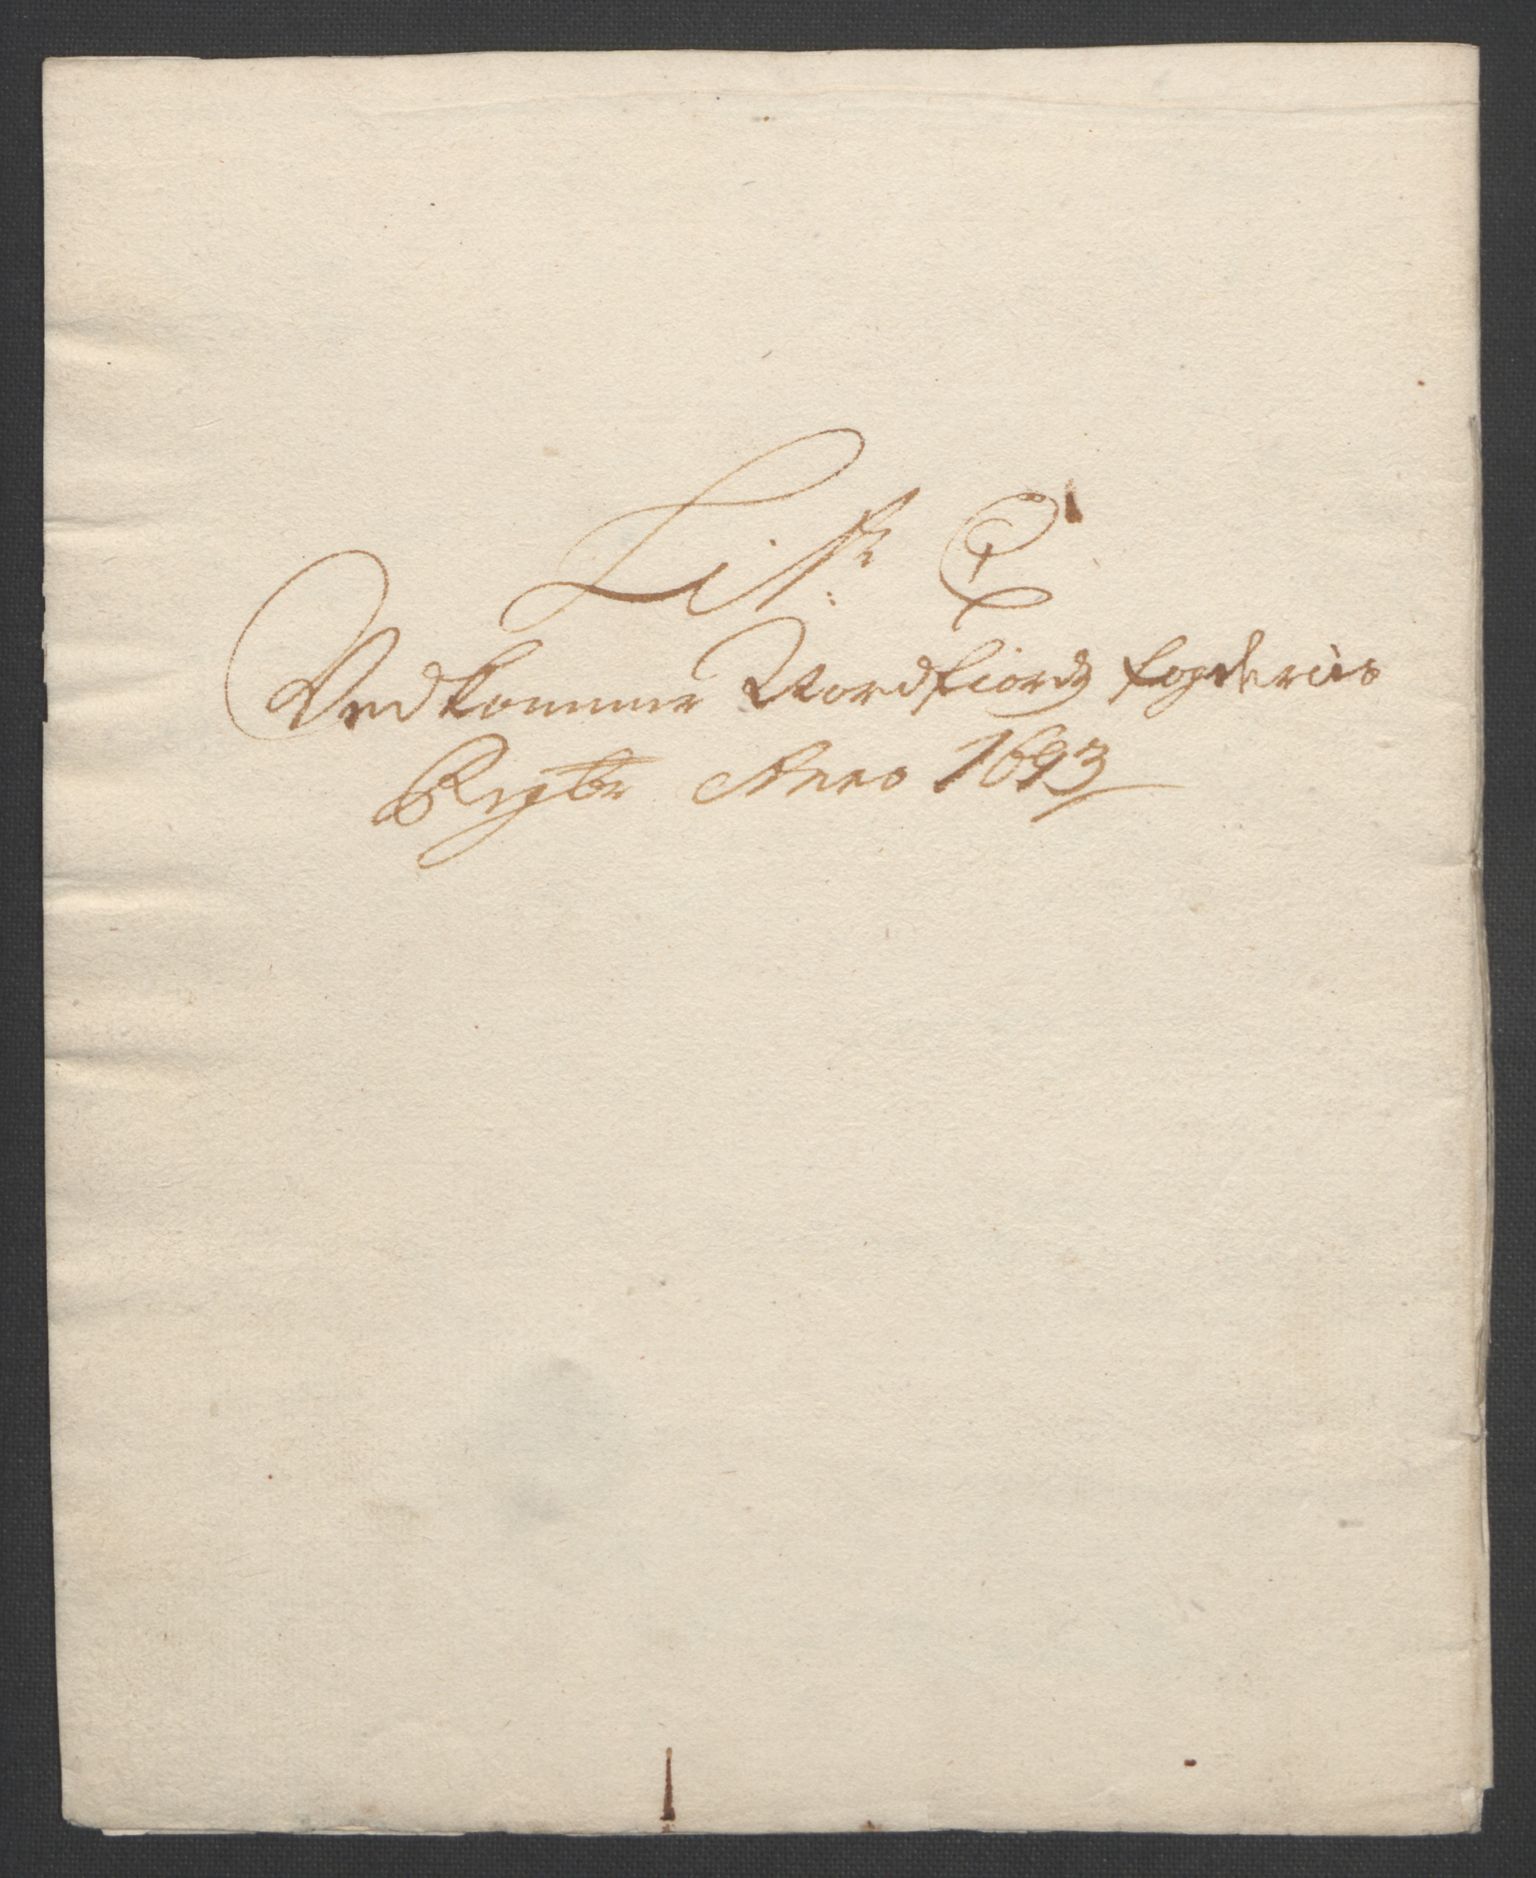 Litr: E
Vedkommer Nordfiords fogderies
Regtr Anno 1693